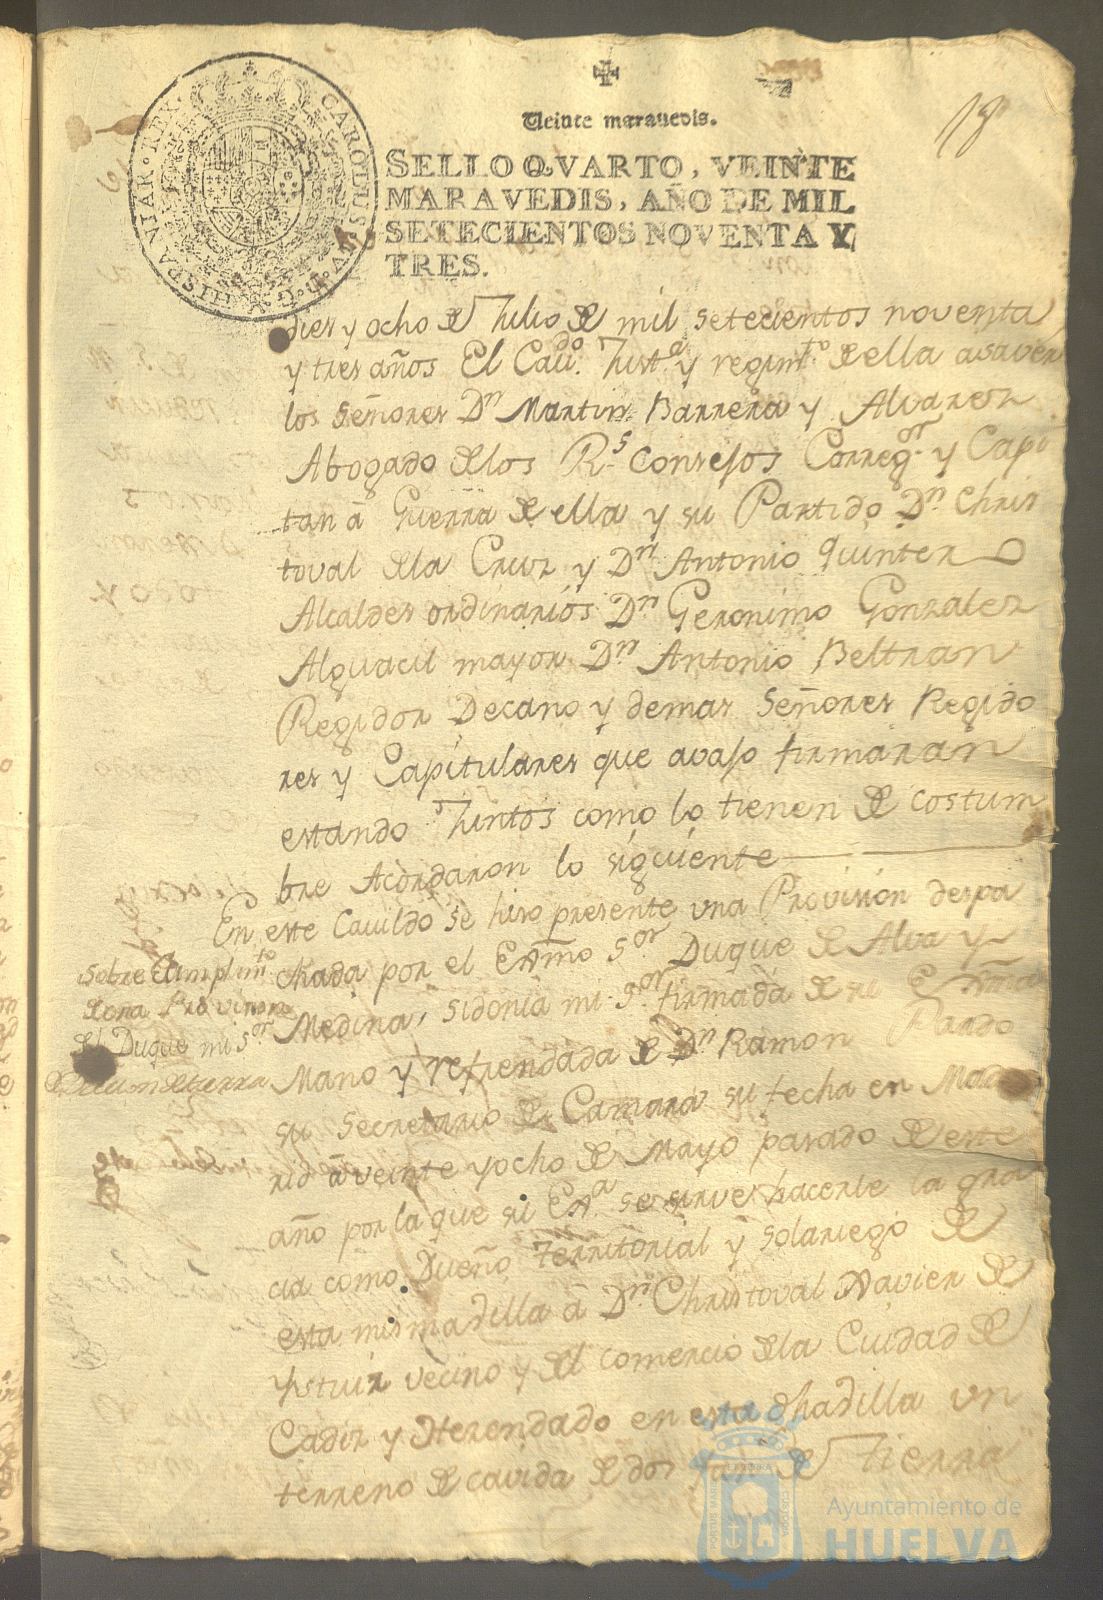 18
Veinte maravedis.
SELLO QVARTO, VEINTE
MARAVEDIS, AÑO DE MIL
SETECIENTOS NOVENTA Y
TRES.
CAROLUS IV D G HISPANIAR REX
dies y ocho de Julio de mil setecientos noventa
y tres años El Cavdo. Justa. y regimto. de ella asaver
los Señores Dn Martin Barrera y Alvarez
Abogado de los Rs. Consejos Corregor. y Capi
tan â Guerra de ella y su Partido Dn Chris
toval de la Cruz y Dn Antonio Quintero
Alcaldes ordinarios Dn Geronimo Gonzalez
Alguacil mayor Dn Antonio Beltran
Regidor Decano y demas Señores Regido
res y Capitulares que avajo firmaran
estando Juntos como lo tienen de costum
bre Acordaron lo siguiente
En este Cavildo se hiso presente una Provision despa
chada por el Exmo Sor Duque de Alva y
Medina, Sidonia mi Sor. firmada de su Exma
Mano y refrendada de Dn Ramon Pardo
su Secretario de Camara su fecha en Mad
rid â veinte y ocho de Mayo pasado de este
año por la que su Exa. se sirve hacerle la gra
cia como Dueño Territorial y Solariego de
esta misma villa â Dn Christoval Xavier de
Ysturiz vecino y del comercio de la Ciudad de
Cadiz y Hacendado en esta dha villa un
terreno de cavida de dos de tierra
Sobre Cumplimto
de una Provision
del Duque mi Sor
de tierra
Ayuntamiento de
HUELVA